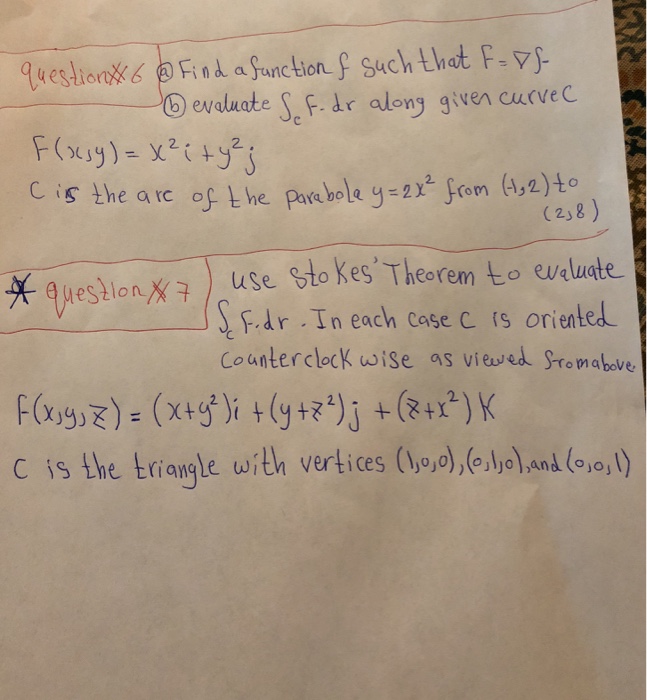 question#6 ⓐ Find a function f such that F=∇f.
ⓑ evaluate ∫c F.dr along given curve C
F(x,y) = x²i + y²j
C is the arc of the parabola y=2x² from (-1,2) to
(2,8)
* question#7 use Stokes' Theorem to evaluate
∫c F.dr. In each case C is oriented
Counterclockwise as viewed from above
F(x,y,z) = (x+y²)i + (y+z²)j + (z+x²)K
C is the triangle with vertices (1,0,0),(0,1,0),and (0,0,1)